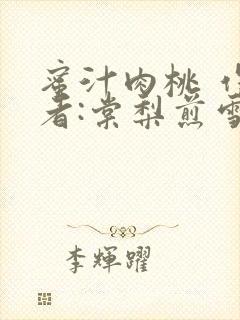 蜜汁肉桃 作
者:棠梨煎雪
李輝躍